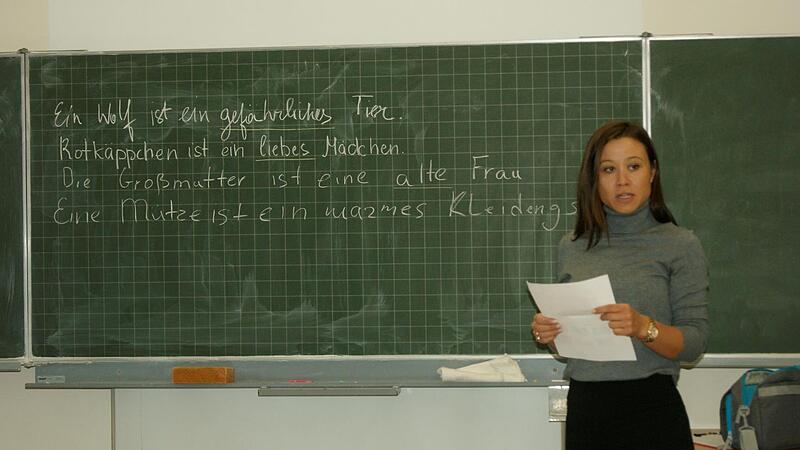 Ein Wolf ist ein gefährliches Tier.
Rotkäppchen ist ein liebes Mädchen.
Die Großmutter ist eine alte Frau
Eine Mütze ist ein warmes Kleidengs